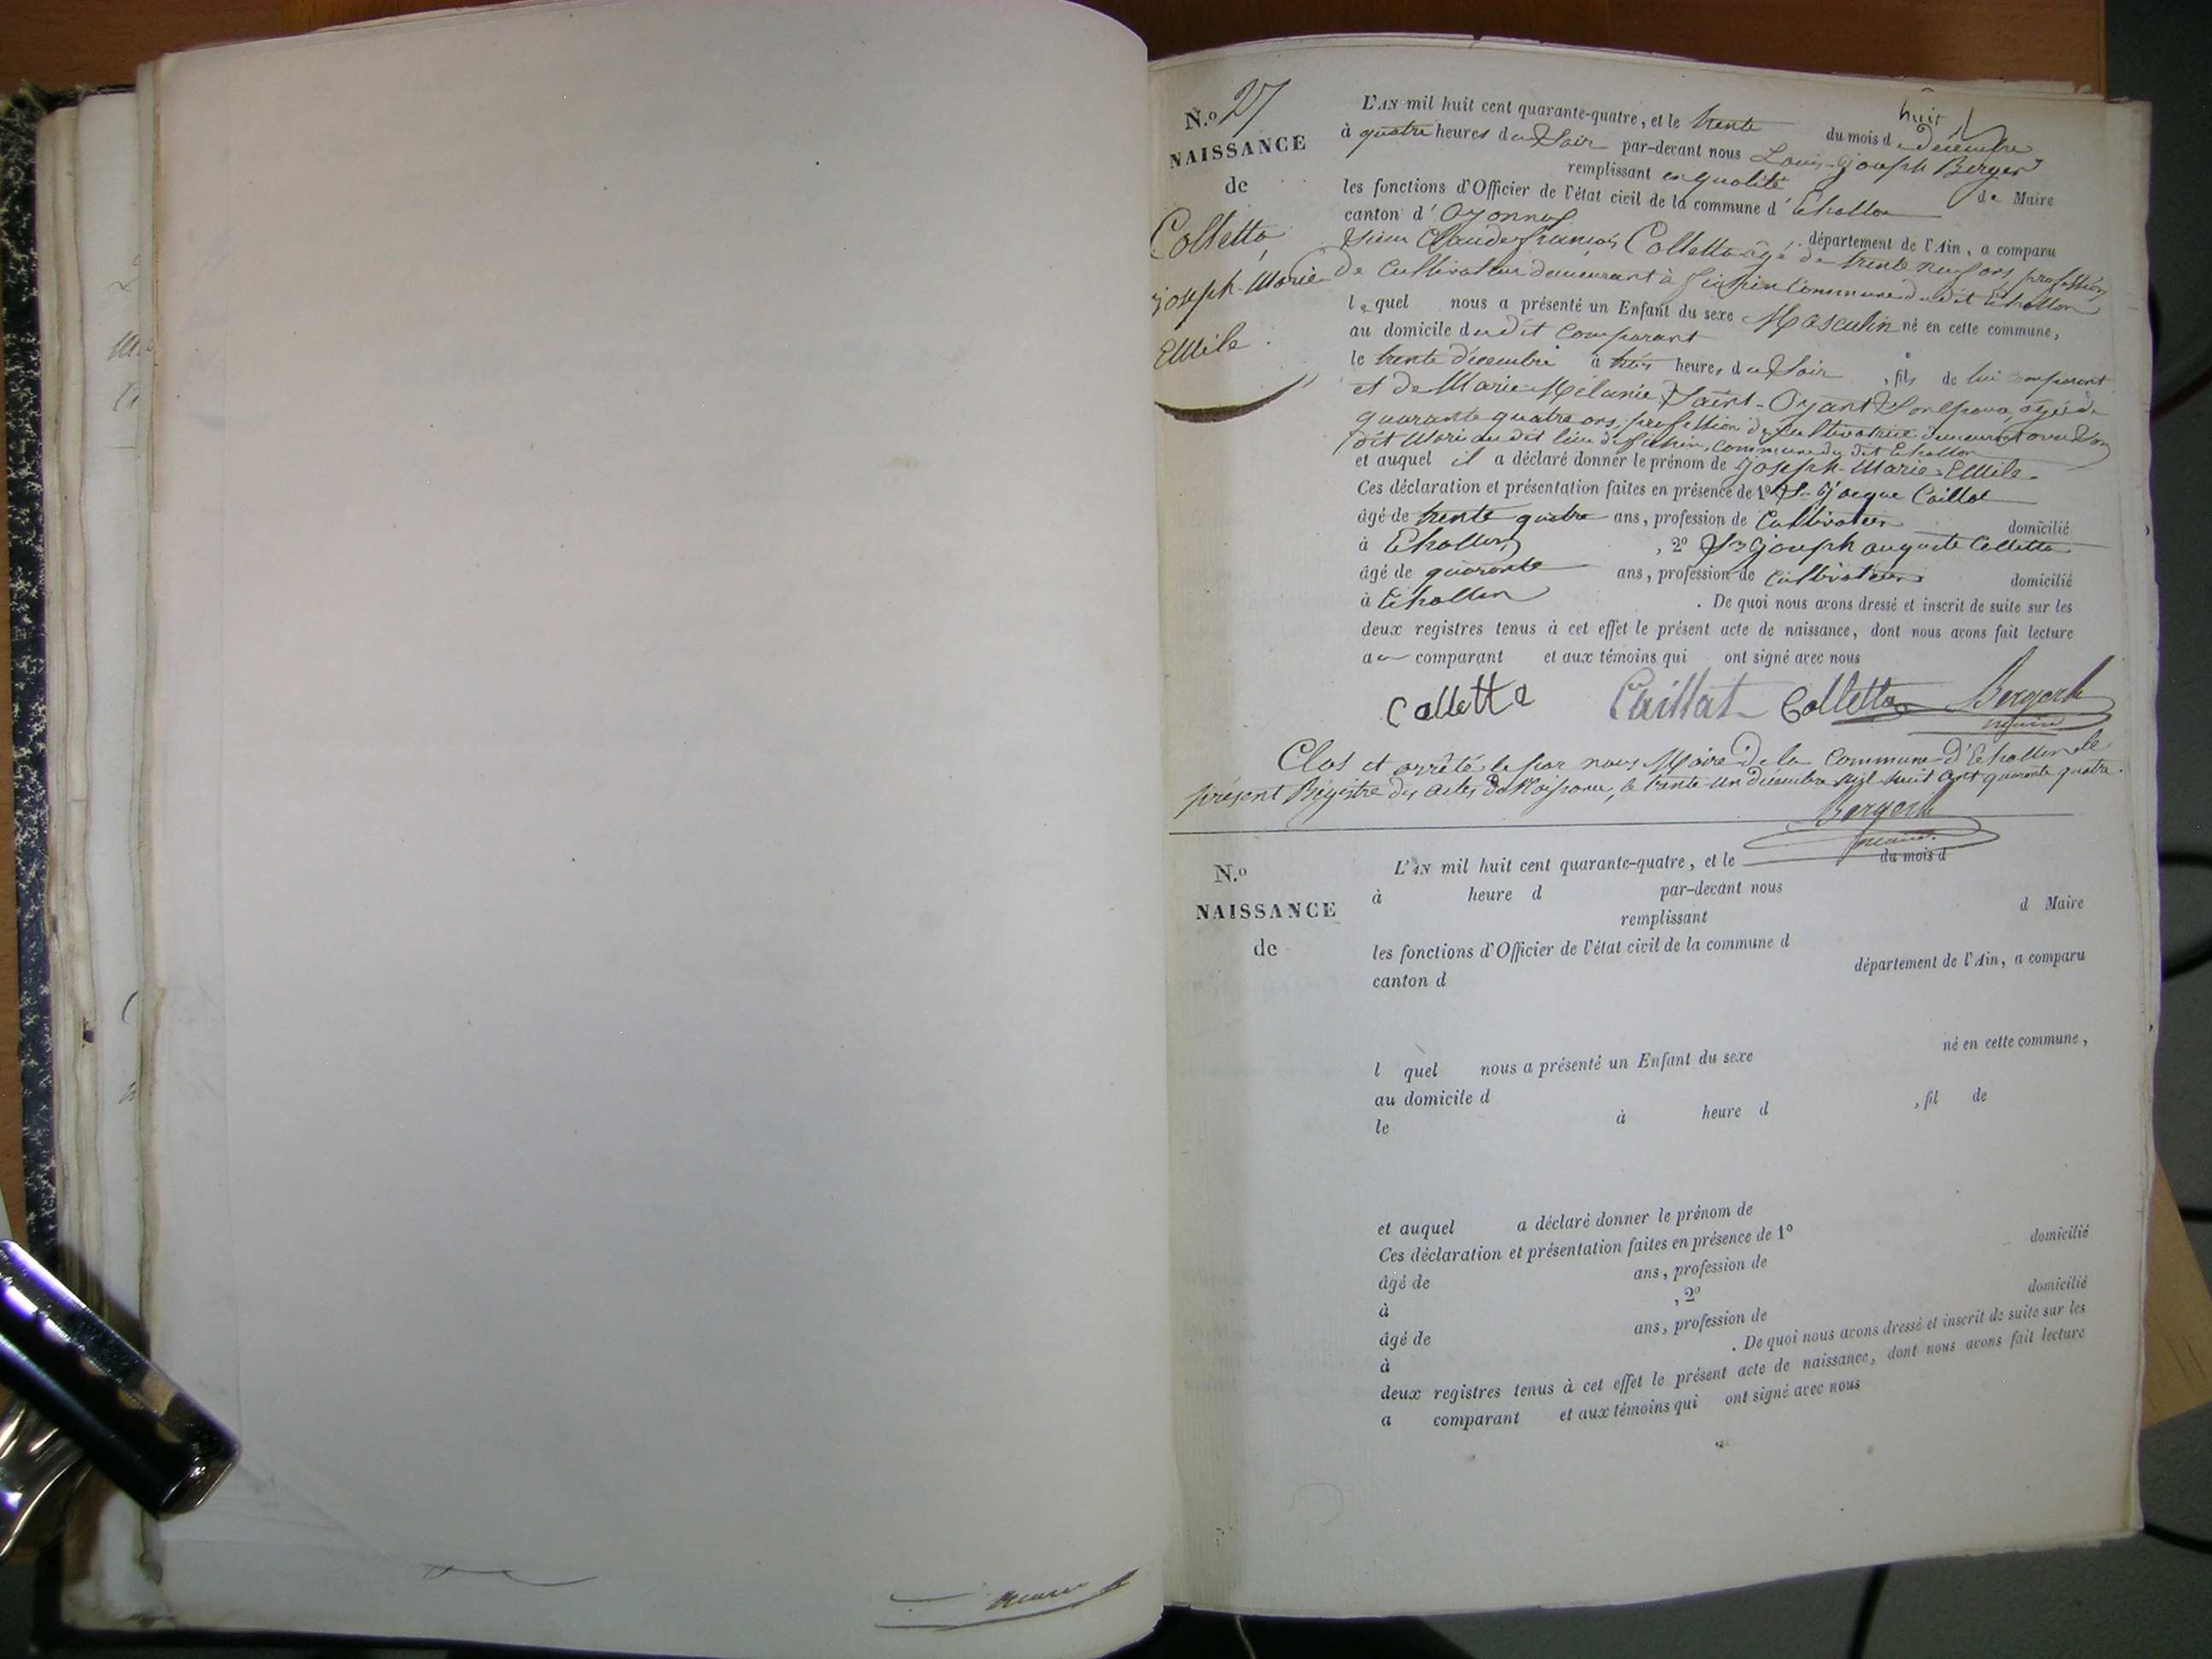 N.º 27
NAISSANCE
de
Colletta,
Joseph-Marie
Emile.
huit
L'AN mil huit cent quarante-quatre, et le trente du mois de décembre
à quatre heures du Soir par-devant nous Louis-Joseph Berger
remplissant en qualité de Maire
les fonctions d'Officier de l'état civil de la commune d'Echallon
canton d'Oyonnax département de l'Ain, a comparu
Sieur Claude françois Colletta âgé de trente neuf ans, profession
de Cultivateur demeurant à commune du dit Echallon
lequel nous a présenté un Enfant du sexe Masculin né en cette commune,
au domicile du dit comparant
le trente décembre à trois heures du Soir, fils de lui comparant
et de Marie-Mélanie Saint-Oyant Son épouse, âgée de
quarante quatre ans, profession de Cultivatrice demeurant avec Son
dit Mari au dit lieu de commune du dit Echallon
et auquel il a déclaré donner le prénom de Joseph-Marie-Emile.
Ces déclaration et présentation faites en présence de 1º Sr Jacque Caillat
âgé de trente quatre ans, profession de Cultivateur domicilié
à Echallon, 2º Sr Joseph auguste Colletta
âgé de quarante ans, profession de Cultivateur domicilié
à Echallon. De quoi nous avons dressé et inscrit de suite sur les
deux registres tenus à cet effet le présent acte de naissance, dont nous avons fait lecture
au comparant et aux témoins qui ont signé avec nous
Colletta Caillat Colletta Berger
maire
Clos et arrêté le par nous Maire de la Commune d'Echallon le
présent Régistre des actes de Naissance, le trente un décembre mil huit cent quarante quatre.
Berger
maire
N.º
NAISSANCE
de
L'AN mil huit cent quarante-quatre, et le du mois d
à heure d par-devant nous
remplissant d Maire
les fonctions d'Officier de l'état civil de la commune d
canton d département de l'Ain, a comparu
l quel nous a présenté un Enfant du sexe né en cette commune,
au domicile d
le à heure d , fil de
et auquel a déclaré donner le prénom de
Ces déclaration et présentation faites en présence de 1º
âgé de ans, profession de domicilié
à , 2º
âgé de ans, profession de domicilié
à . De quoi nous avons dressé et inscrit de suite sur les
deux registres tenus à cet effet le présent acte de naissance, dont nous avons fait lecture
a comparant et aux témoins qui ont signé avec nous